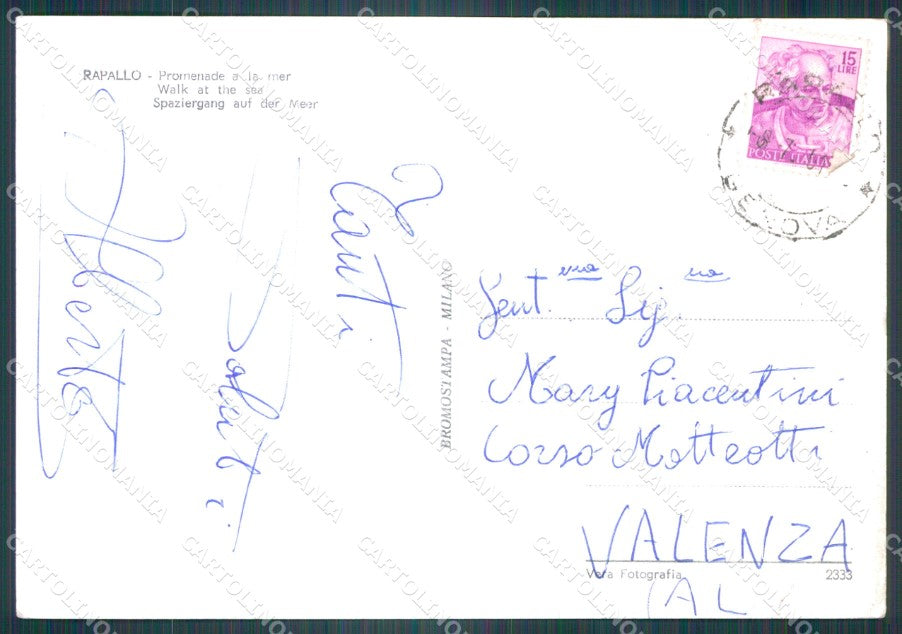 RAPALLO - Promenade a la mer
Walk at the sea
Spaziergang auf der Meer
15
LIRE
POSTE ITALIANE
GENOVA
Tanti
Saluti
Alberto
BROMOSTAMPA - MILANO
Gent.ma Sig.na
Mary Piacentini
Corso Matteotti
VALENZA
(AL
Vera Fotografia
2333
CARTOLINOMANIA